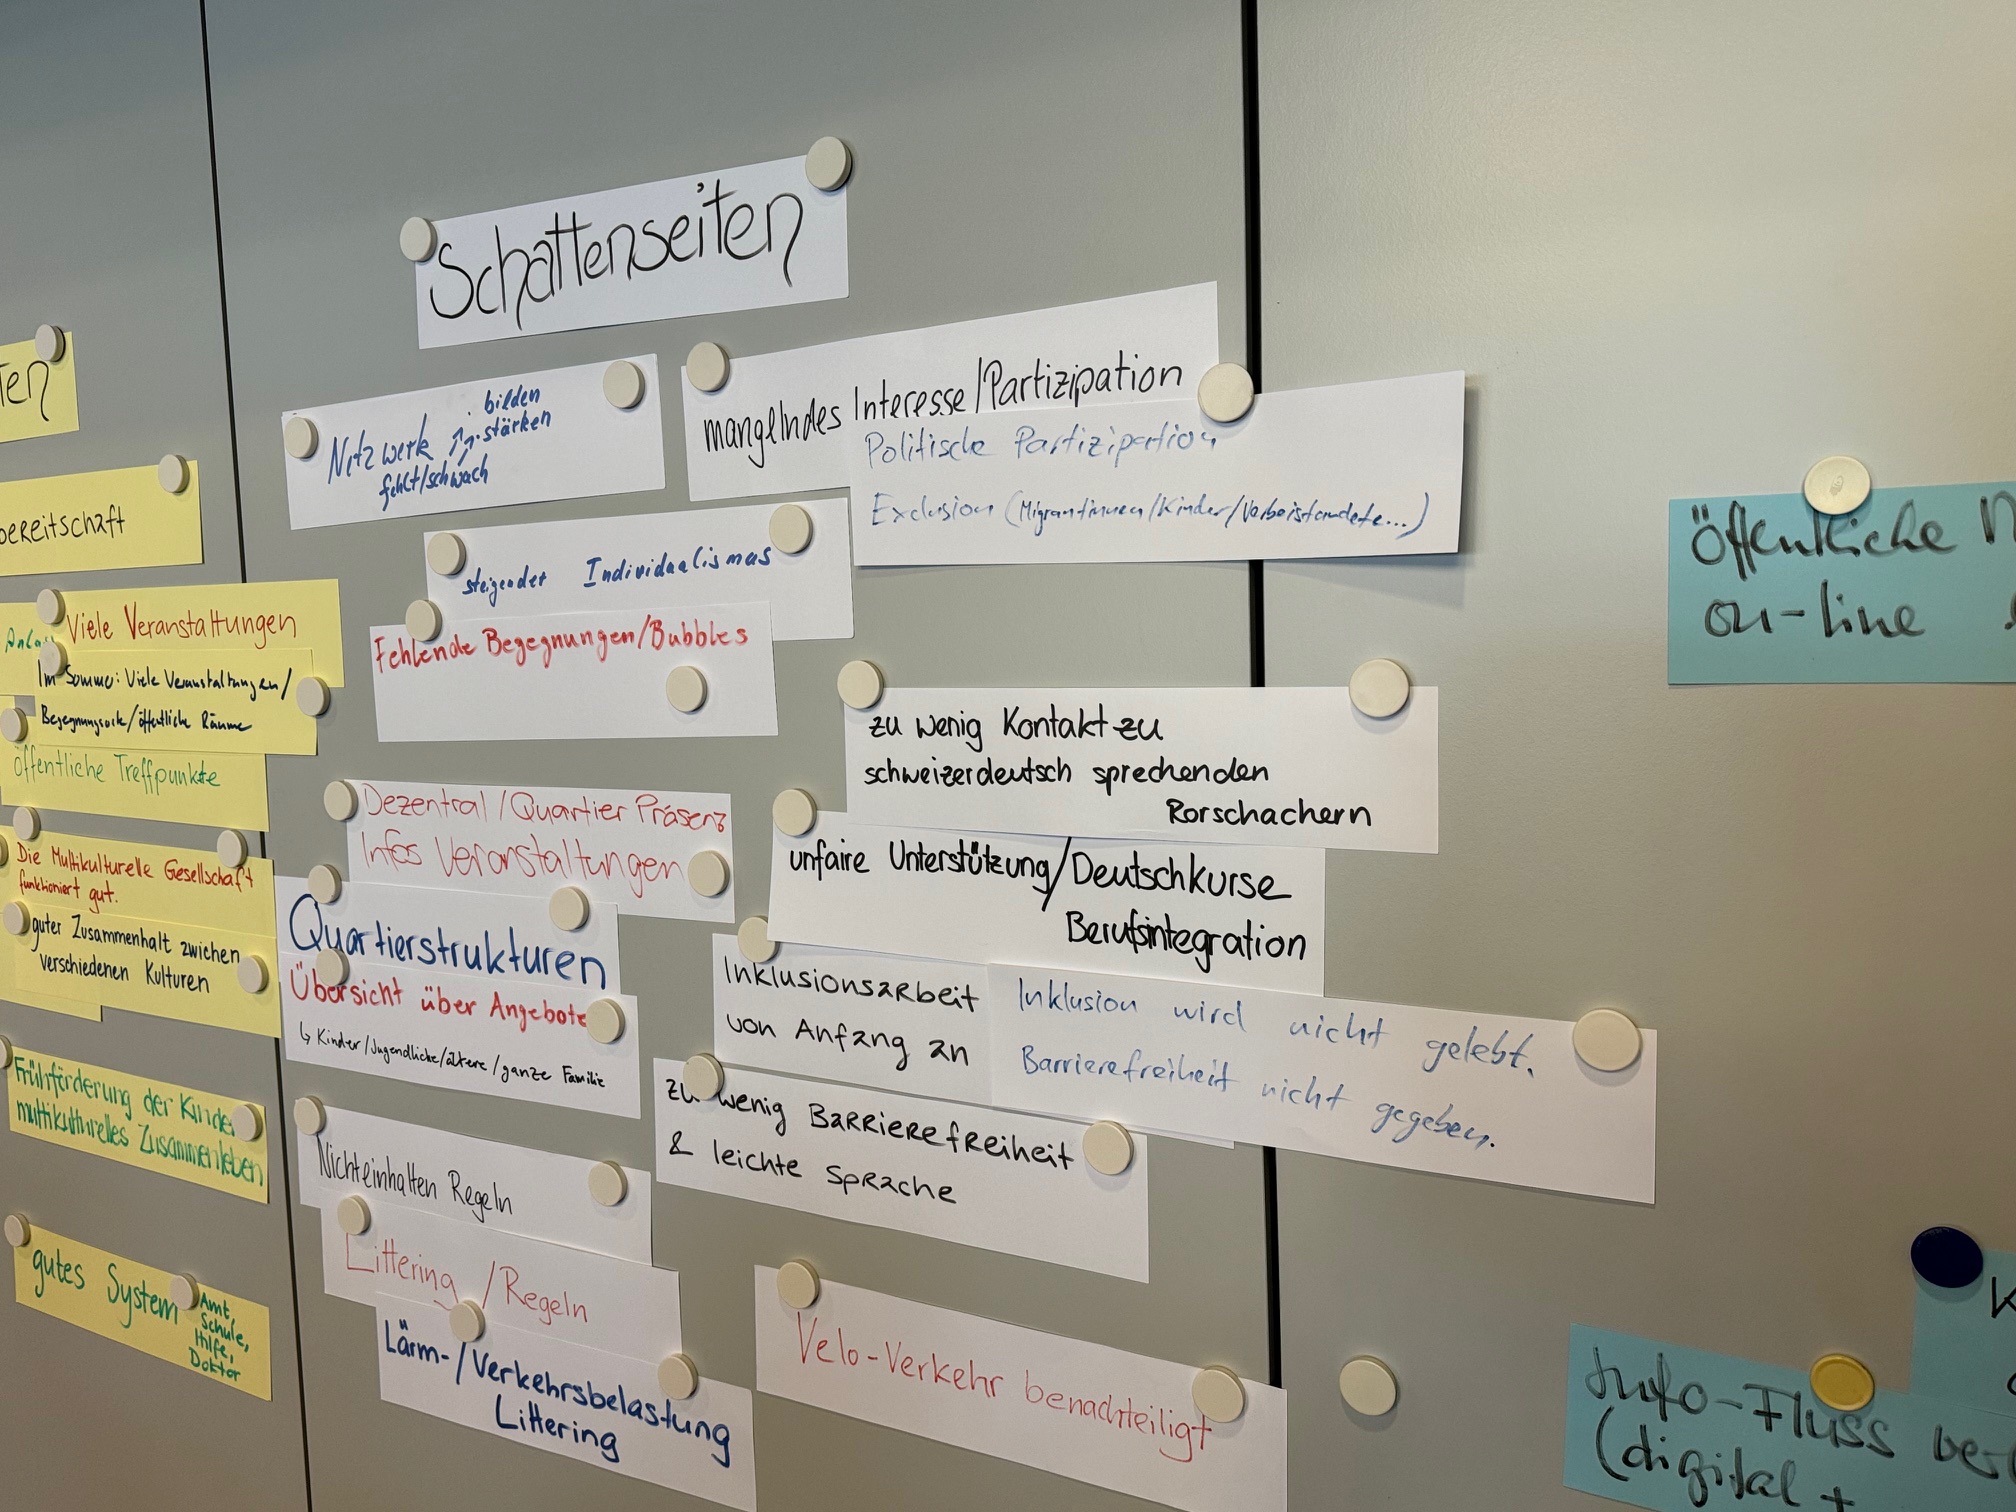 Schattenseiten
Netzwerk
bilden
stärken
fehlt/schwach
mangelndes Interesse/Partizipation
Politische Partizipation
Exclusion (Migrantinnen/Kinder/Verbeistandete...)
steigender Individualismus
Fehlende Begegnungen/Bubbles
zu wenig Kontakt zu
schweizerdeutsch sprechenden
Rorschachern
Dezentral/Quartier Präsenz
Infos Veranstaltungen
unfaire Unterstützung/Deutschkurse
Berufsintegration
Quartierstrukturen
Übersicht über Angebote
↳ Kinder/Jugendliche/ältere/ganze Familie
Inklusionsarbeit
von Anfang an
Inklusion wird nicht gelebt.
Barrierefreiheit nicht gegeben.
zu wenig Barrierefreiheit
& leichte Sprache
Nichteinhalten Regeln
Littering/Regeln
Lärm-/Verkehrsbelastung
Littering
Velo-Verkehr benachteiligt
ten
bereitschaft
Viele Veranstaltungen
Im Sommer: Viele Veranstaltungen/
Begegnungsorte/öffentliche Räume
öffentliche Treffpunkte
Die Multikulturelle Gesellschaft
funktioniert gut.
guter Zusammenhalt zwichen
verschiedenen Kulturen
Frühförderung der Kinder
multikulturelles Zusammenleben
gutes System
Amt,
Schule,
Hilfe,
Doktor
Öffentliche
on-line
Info-Fluss ver
(digital +